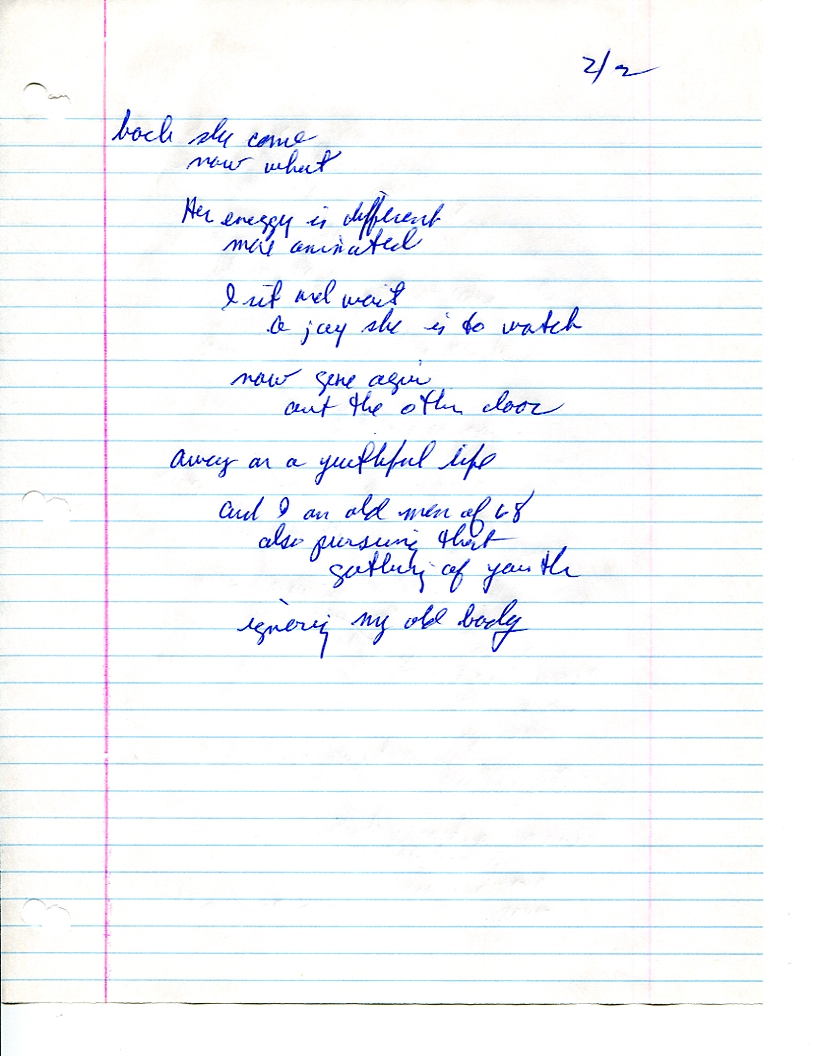 2/2
back she come
now what
Her energy is different
more animated
I sit and wait
a joy she is to watch
now gone again
out the other door
away on a youthful life
and I an old man of 68
also pursuing that
of youth
ignoring my old body